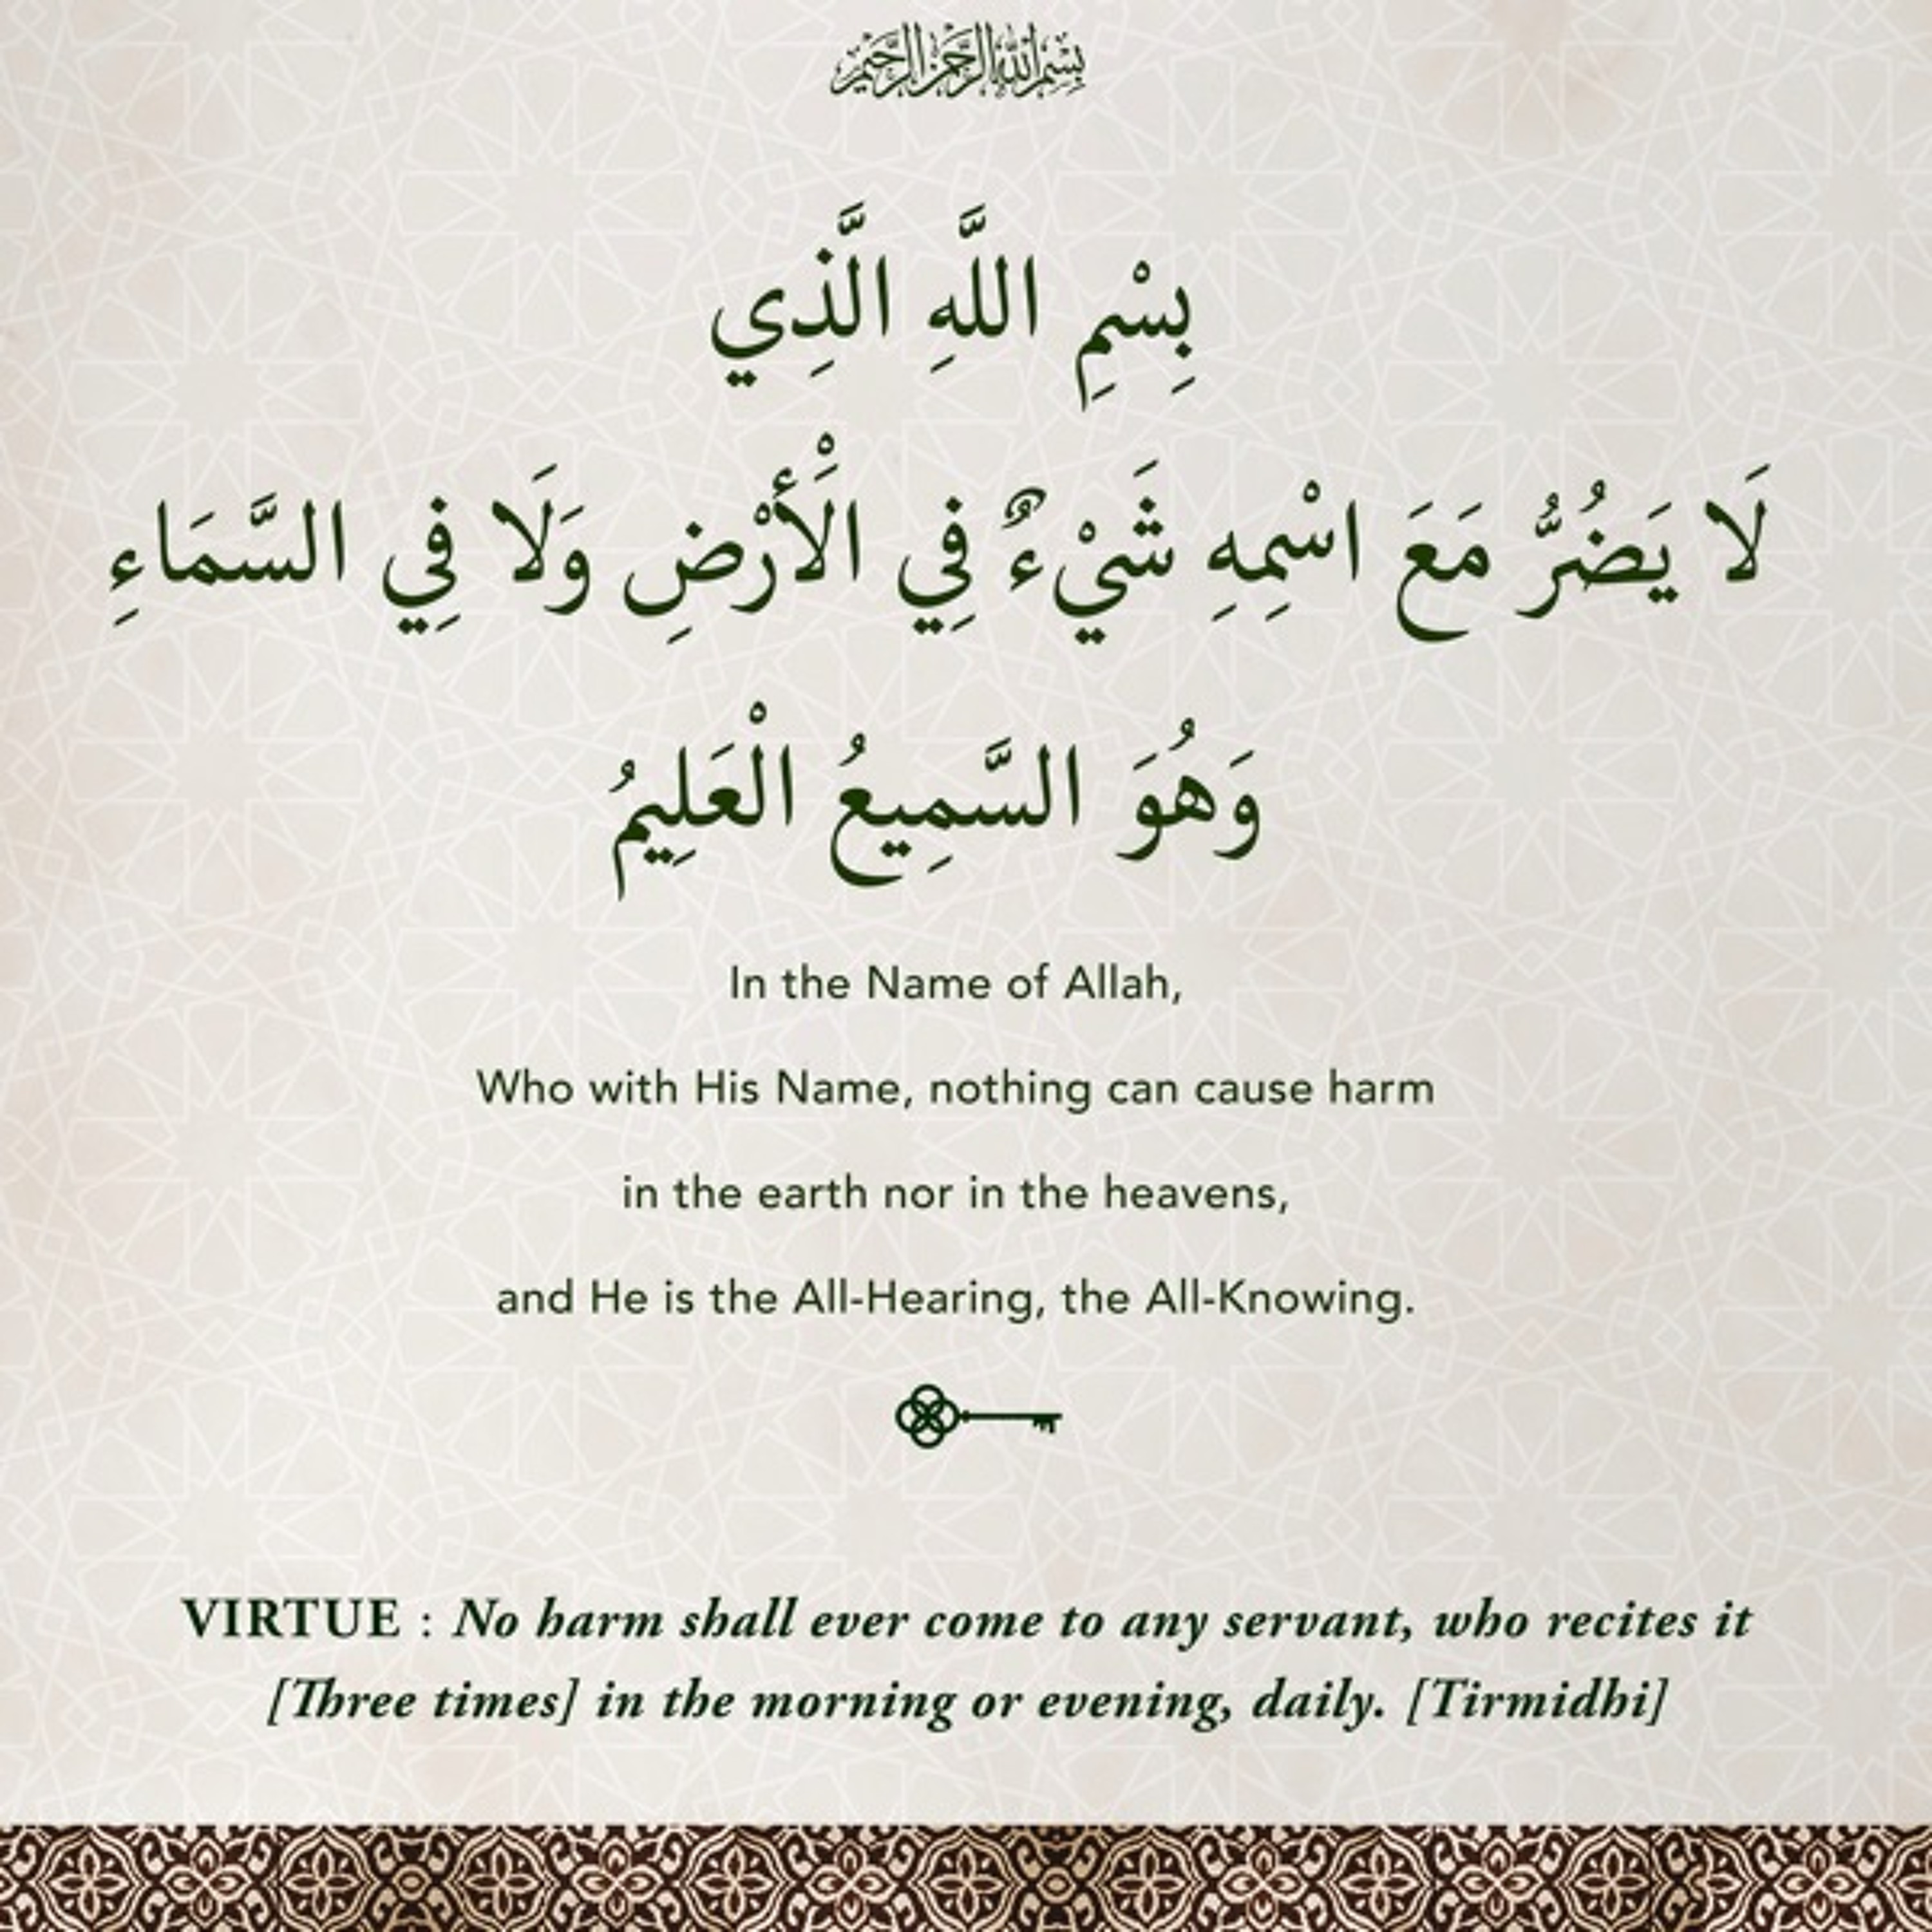 بسم الله الرحمن الرحيم
بِسْمِ اللَّهِ الَّذِي
لَا يَضُرُّ مَعَ اسْمِهِ شَيْءٌ فِي الْأَرْضِ وَلَا فِي السَّمَاءِ
وَهُوَ السَّمِيعُ الْعَلِيمُ
In the Name of Allah,
Who with His Name, nothing can cause harm
in the earth nor in the heavens,
and He is the All-Hearing, the All-Knowing.
VIRTUE : No harm shall ever come to any servant, who recites it
[Three times] in the morning or evening, daily. [Tirmidhi]